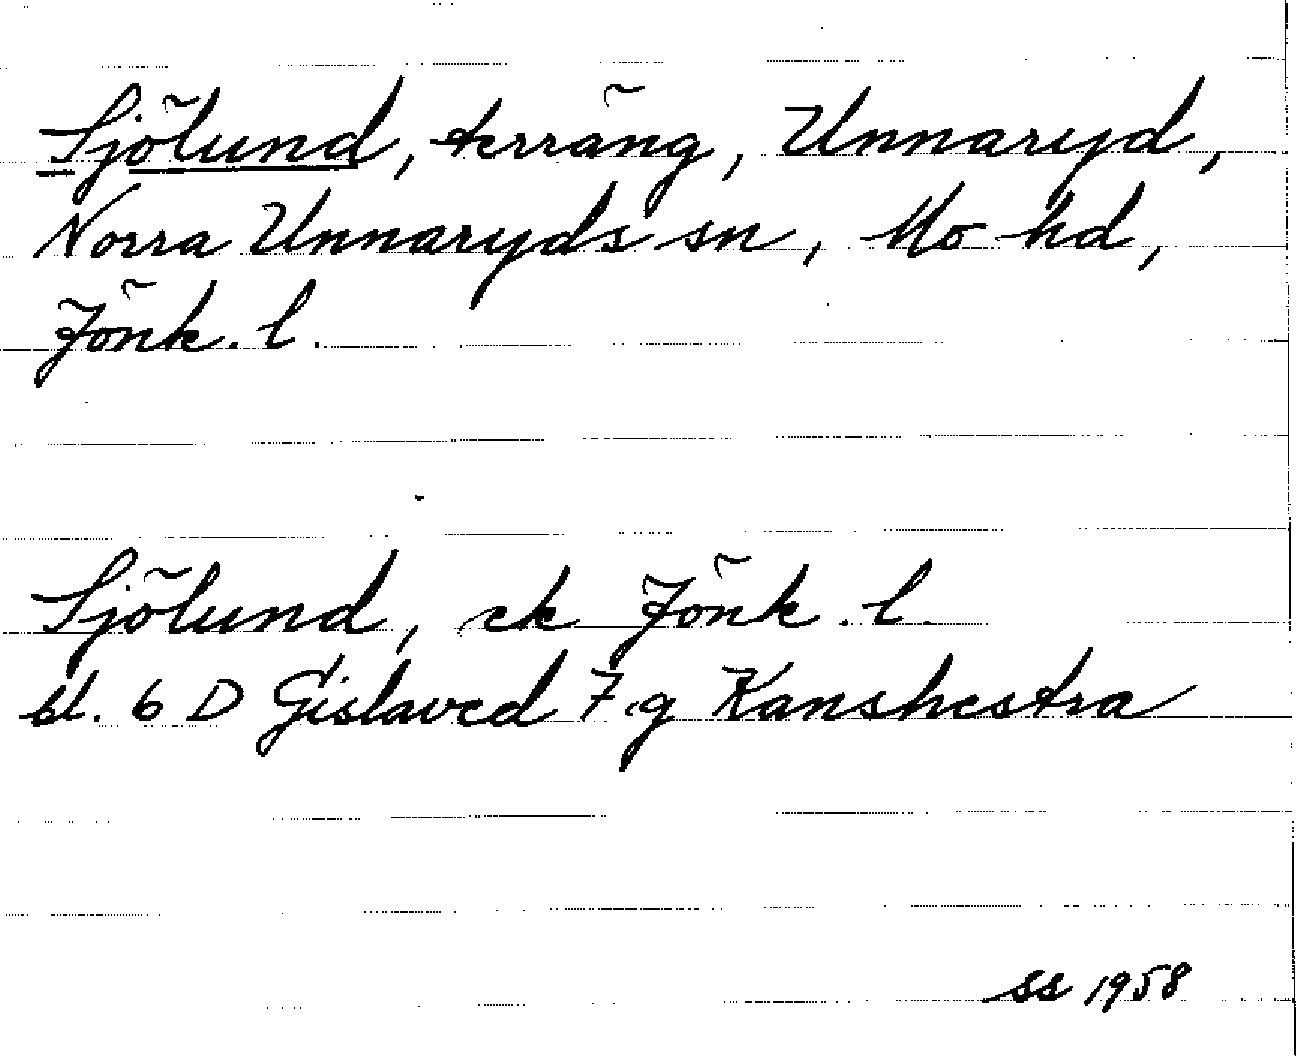 Sjölund, terräng, Unnaryd,
Norra Unnaryds sn, Mo hd,
Jönk. l.
Sjölund, ek Jönk. l.
bl. 6 D Gislaved 7 g Kanshestra
ss 1958